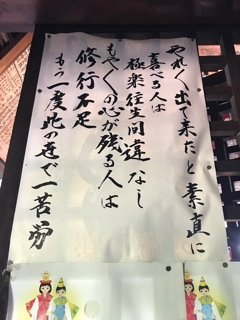 やれ〱出て来たと素直に
喜べる人は
極楽往生間違なし
もや〱の心が残る人は
修行不足
もう一度此の世で一苦労